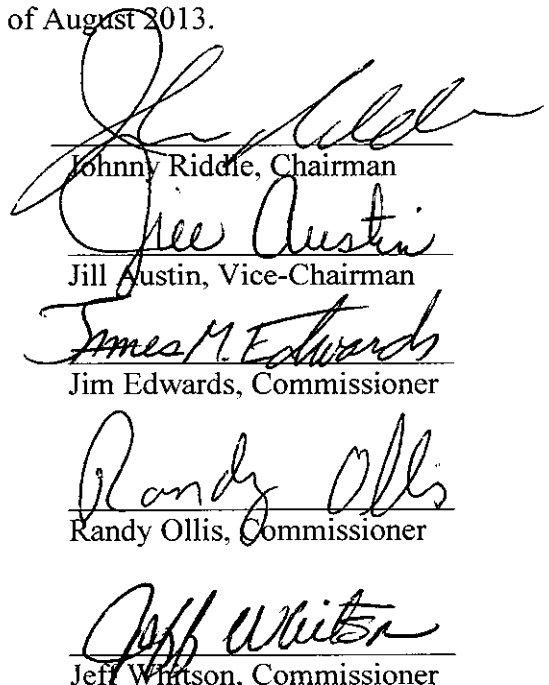 of August 2013.
John Riddle
Johnny Riddle, Chairman
Jill Austin
Jill Austin, Vice-Chairman
James M. Edwards
Jim Edwards, Commissioner
Randy Ollis
Randy Ollis, Commissioner
Jeff Whitson
Jeff Whitson, Commissioner